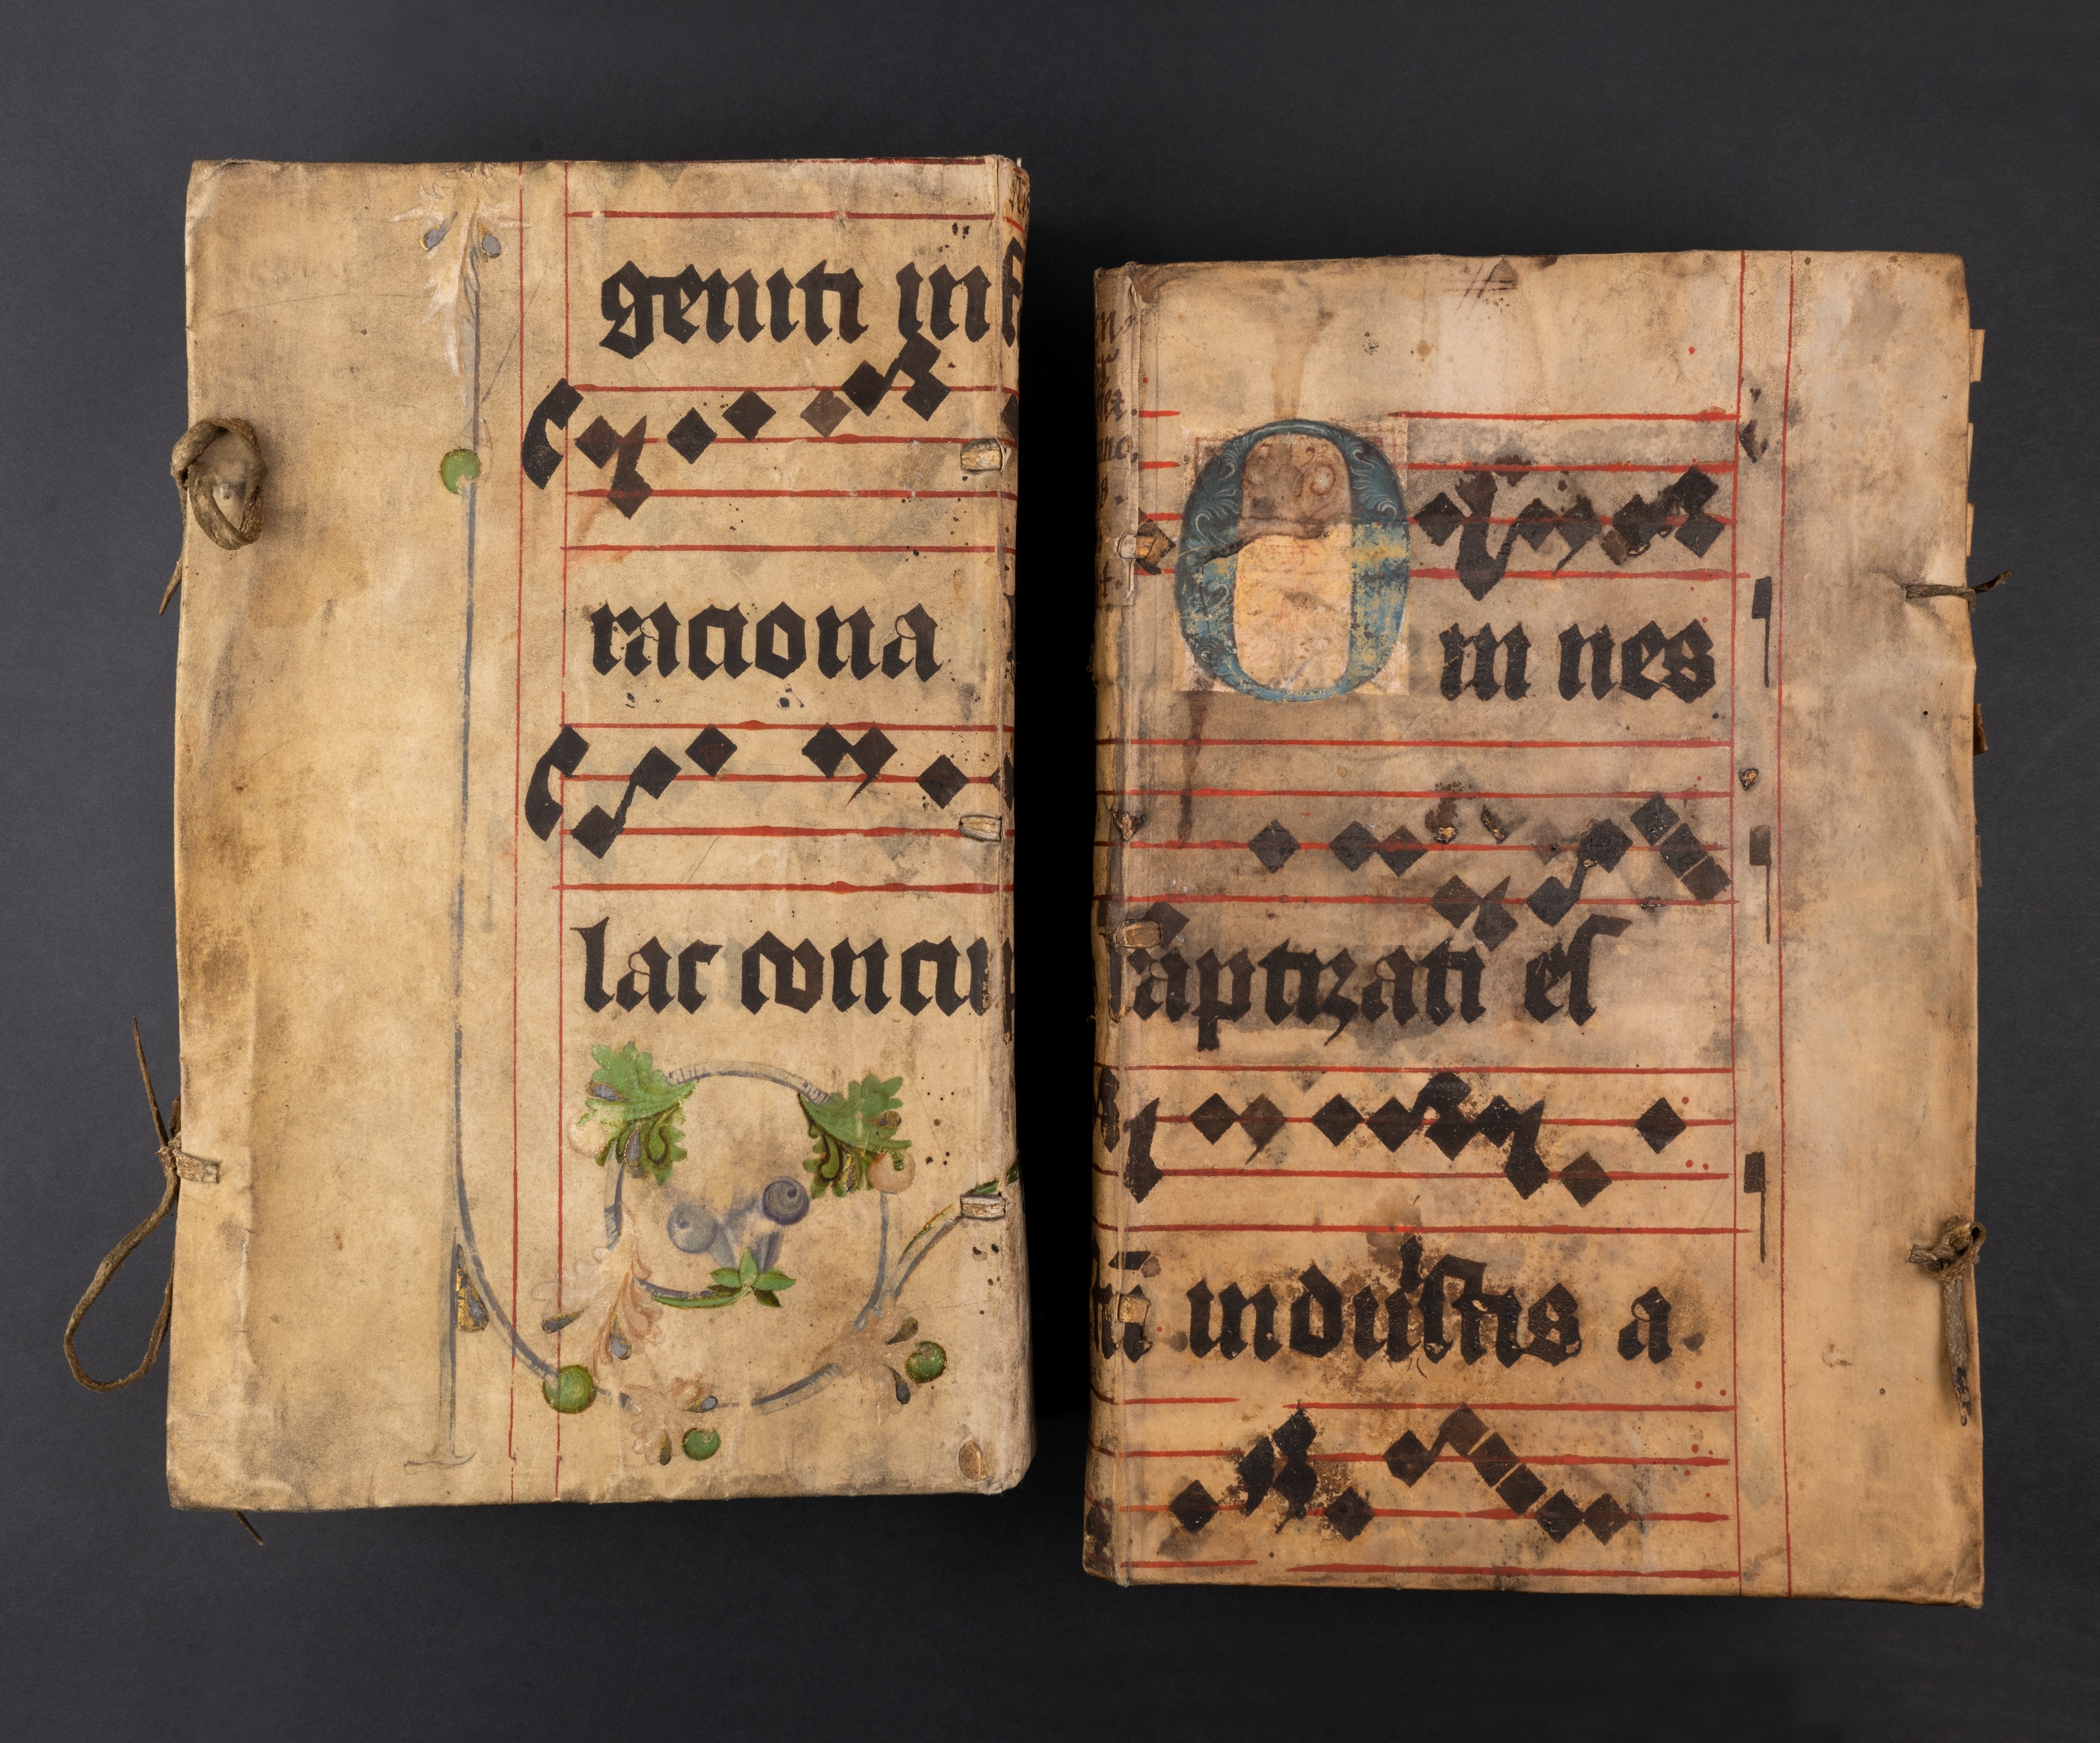 geniti in
raciona
lac concu
O
m nes
aptizati es
ti induistis a.